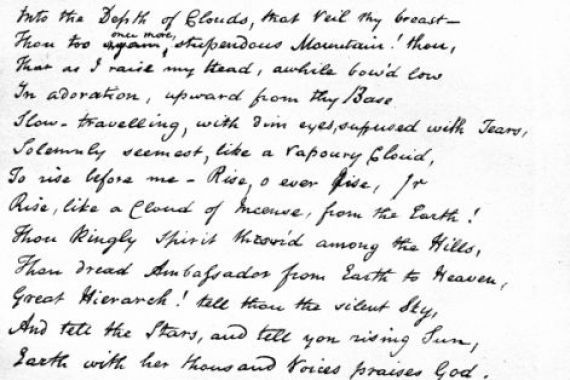 Into the Depth of Clouds, that veil thy breast—
Thou too again, once more, stupendous Mountain! thou,
That as I raise my Head, awhile bow'd low
In adoration, upward from thy Base
Slow-travelling, with dim eyes suffused with Tears,
Solemnly seemest, like a vapoury Cloud,
To rise before me — Rise, o ever rise,
Rise, like a Cloud of Incense, from the Earth!
Thou kingly Spirit thron'd among the Hills,
Thou dread Ambassador from Earth to Heaven,
Great Hierarch! tell thou the silent Sky,
And tell the Stars, and tell yon rising Sun,
Earth with her thousand Voices praises God.